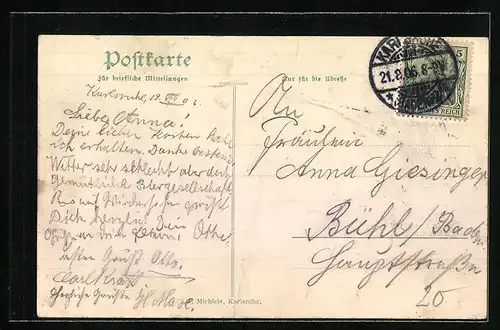 Postkarte
Für briefliche Mitteilungen
Nur für die Adresse
KARLSRUHE
21.8.06. 8-9V
5
REICH
Karlsruhe, 19. VIII 06.
Liebe Anna!
Deine lieben Karten habe
ich erhalten. Danke bestens
Wetter sehr schlecht aber doch
Gemütliche Biergesellschaft
Bis auf Wiedersehen grüßt
Dich herzlich Dein Otto
Gruß Otto.
Carl Kraft
Herzliche Grüße
An
Fräulein
Anna Giesinger
Bühl/Baden
Hauptstraße
20
Michiels, Karlsruhe.